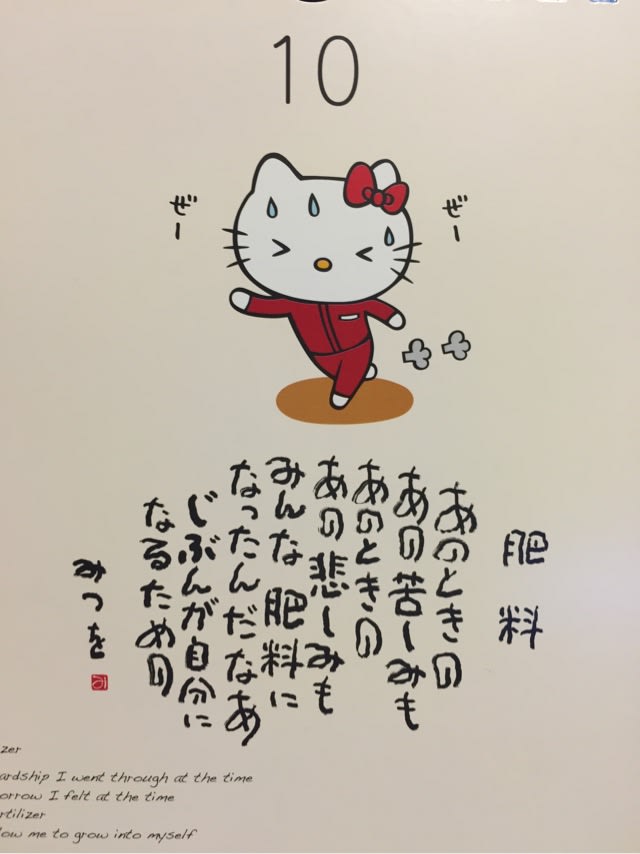 10
ぜー
ぜー
肥料
あのときの
あの苦しみも
あのときの
あの悲しみも
みんな肥料に
なったんだなあ
じぶんが自分に
なるための
みつを
zer
ardship I went through at the time
orrow I felt at the time
rtilizer
low me to grow into myself